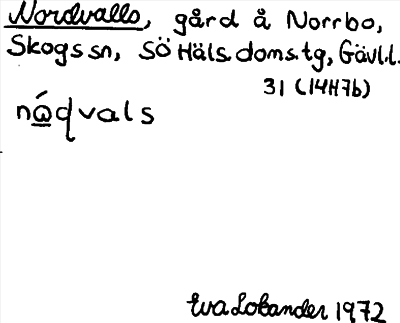 Nordvalls, gård å Norrbo,
Skogs sn, SÖ Häls. doms.tg, Gävl.l.
31 (14H7b)
nά̲qvals
Eva Lobander 1972